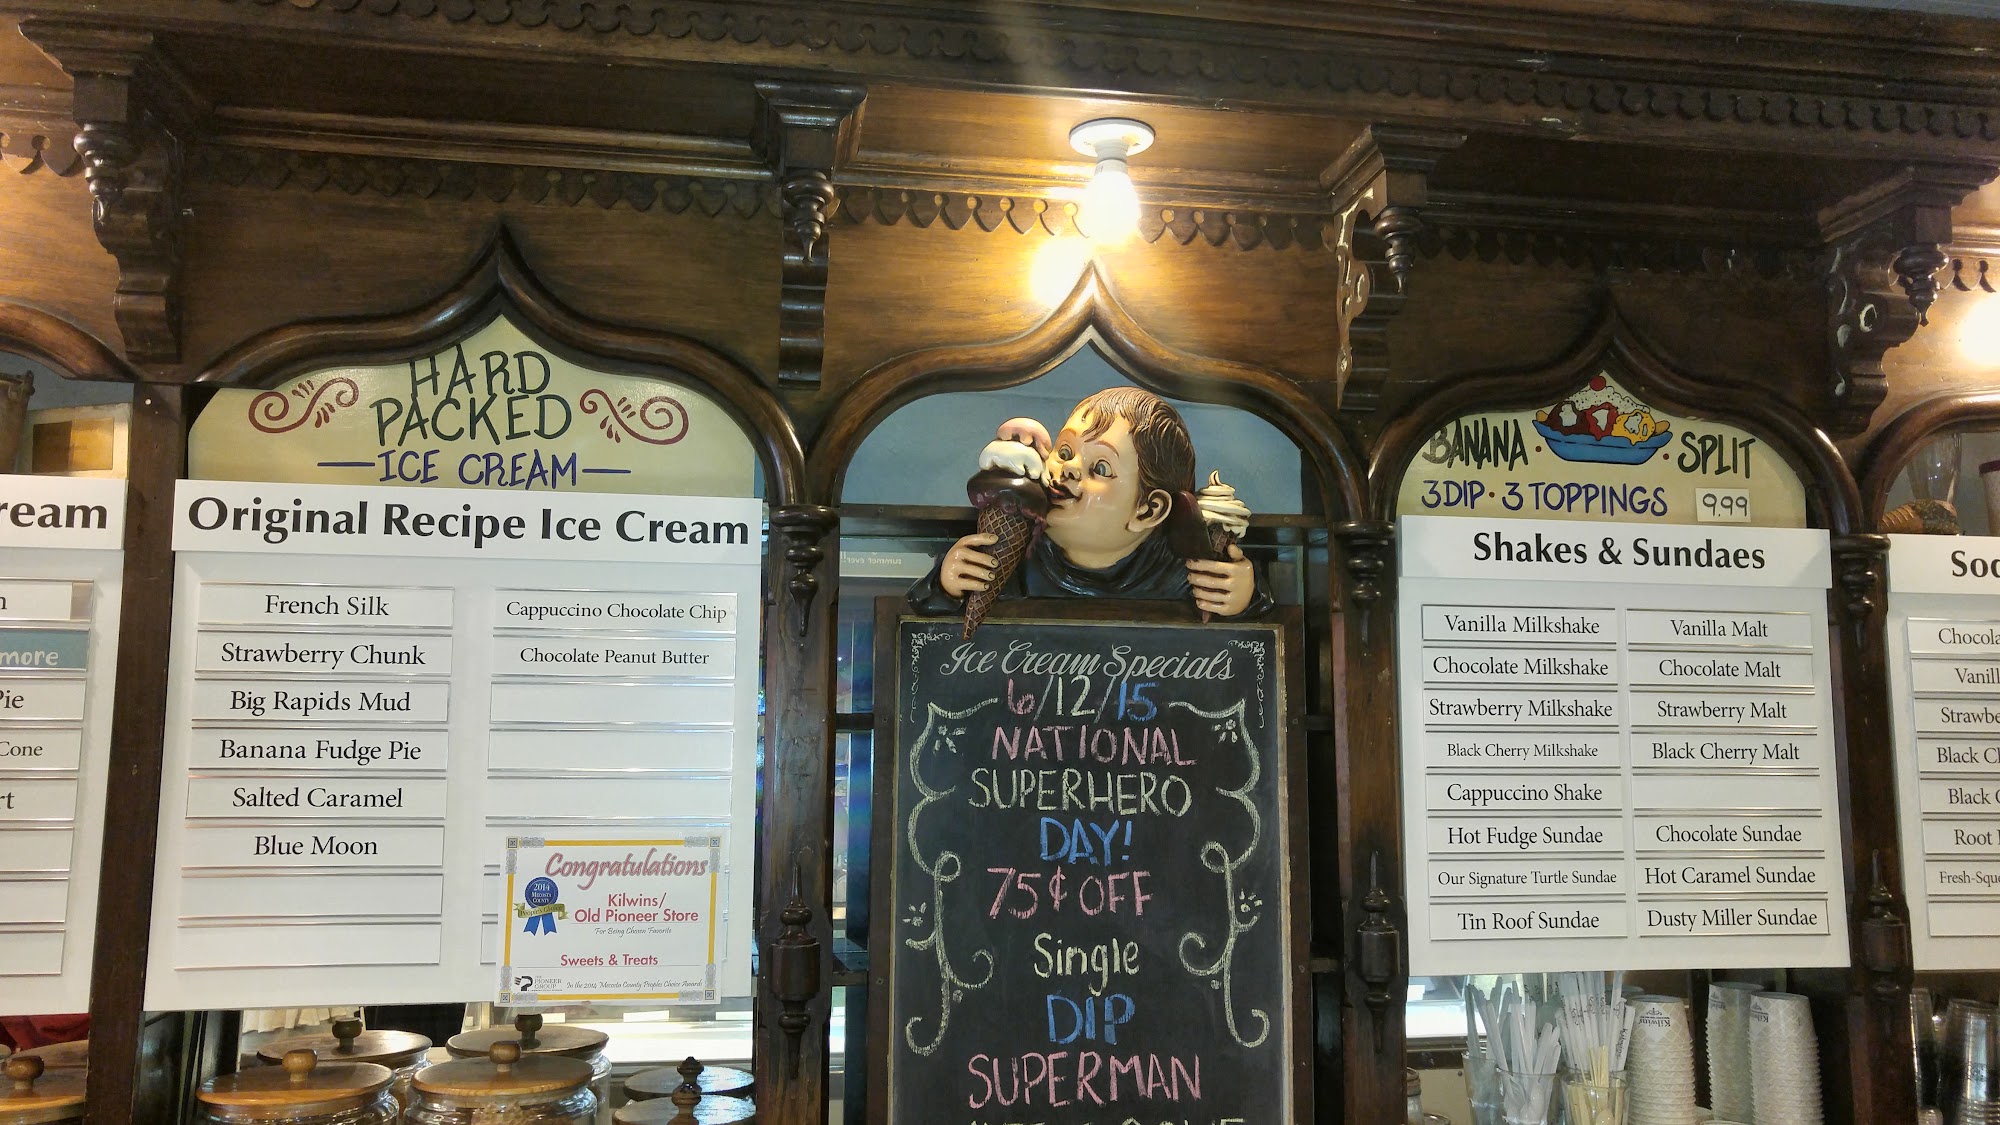 ream
more
Pie
Cone
HARD
PACKED
ICE CREAM
Original Recipe Ice Cream
French Silk
Strawberry Chunk
Big Rapids Mud
Banana Fudge Pie
Salted Caramel
Blue Moon
Cappuccino Chocolate Chip
Chocolate Peanut Butter
Congratulations
2014
MECOSTA
COUNTY
People's Choice
Kilwins/
Old Pioneer Store
For Being Chosen Favorite
Sweets & Treats
PIONEER
GROUP
In the 2014 Mecosta County Peoples Choice Awards
summer ever!!
Ice Cream Specials
6/12/15
NATIONAL
SUPERHERO
DAY!
75¢ OFF
Single
DIP
SUPERMAN
BANANA SPLIT
3 DIP · 3 TOPPINGS 9.99
Shakes & Sundaes
Vanilla Milkshake
Chocolate Milkshake
Strawberry Milkshake
Black Cherry Milkshake
Cappuccino Shake
Hot Fudge Sundae
Our Signature Turtle Sundae
Tin Roof Sundae
Vanilla Malt
Chocolate Malt
Strawberry Malt
Black Cherry Malt
Chocolate Sundae
Hot Caramel Sundae
Dusty Miller Sundae
Kilwins
Soc
Chocola
Vanill
Strawbe
Black Ch
Black C
Root
Fresh-Sque